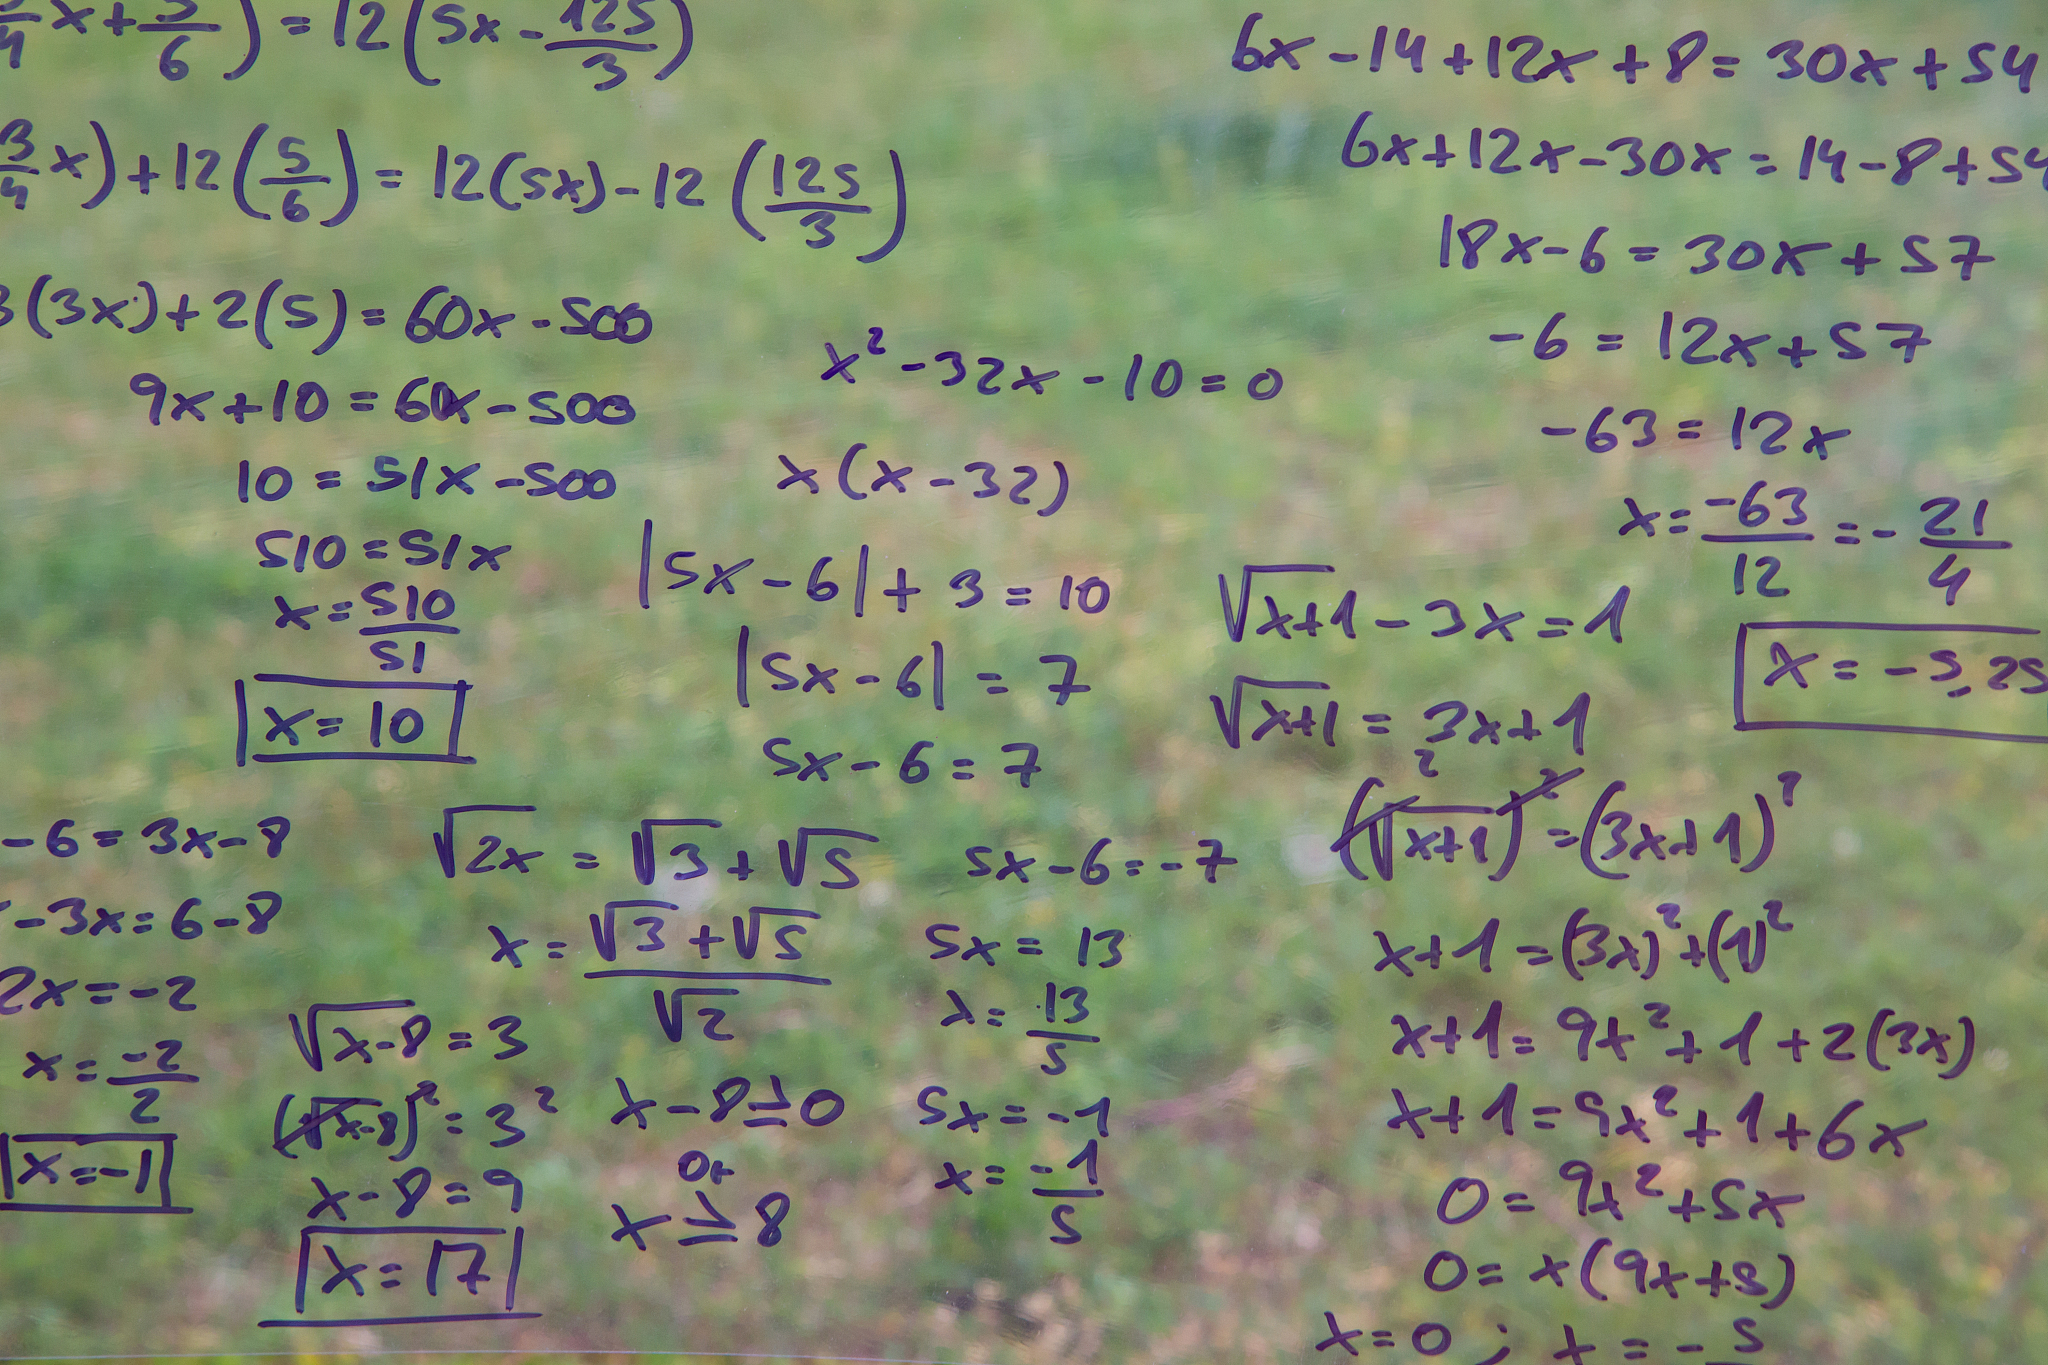 3/4 x + 5/6 ) = 12 ( 5x - 125/3 )
3/4 x ) + 12 ( 5/6 ) = 12(5x) - 12 ( 125/3 )
3(3x) + 2(5) = 60x - 500
9x + 10 = 60x - 500
10 = 51x - 500
510 = 51x
x = 510/51
x = 10
-6 = 3x - 8
- 3x = 6 - 8
2x = -2
x = -2/2
x = -1
√x-8 = 3
(√x-8)² = 3²
x - 8 = 9
x = 17
√2x = √3 + √5
x = √3 + √5 / √2
x - 8 ≥ 0
or
x ≥ 8
x² - 32x - 10 = 0
x(x - 32)
|5x - 6| + 3 = 10
|5x - 6| = 7
5x - 6 = 7
5x - 6 = -7
5x = 13
x = 13/5
5x = -1
x = -1/5
6x - 14 + 12x + 8 = 30x + 54
6x + 12x - 30x = 14 - 8 + 54
18x - 6 = 30x + 57
-6 = 12x + 57
-63 = 12x
x = -63/12 = - 21/4
x = -5,25
√x+1 - 3x = 1
√x+1 = 3x + 1
(√x+1)² = (3x + 1)²
x + 1 = (3x)² + (1)²
x + 1 = 9x² + 1 + 2(3x)
x + 1 = 9x² + 1 + 6x
0 = 9x² + 5x
0 = x(9x + 5)
x = 0 ; x = - 5